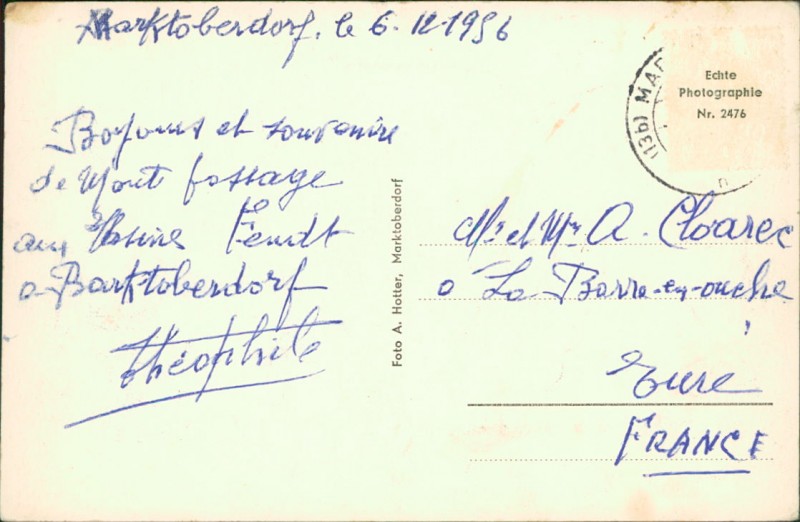 Marktoberdorf, le 6-12-1956
Bojours et souvenire
de Mont passage
aux Usines Fendt
a Barktoberdorf
Théophile
Foto A. Hotter, Marktoberdorf
(13b) MAR
Echte
Photographie
Nr. 2476
Mr et Me A. Cloarec
a La Barre-en-ouche
Eure
FRANCE